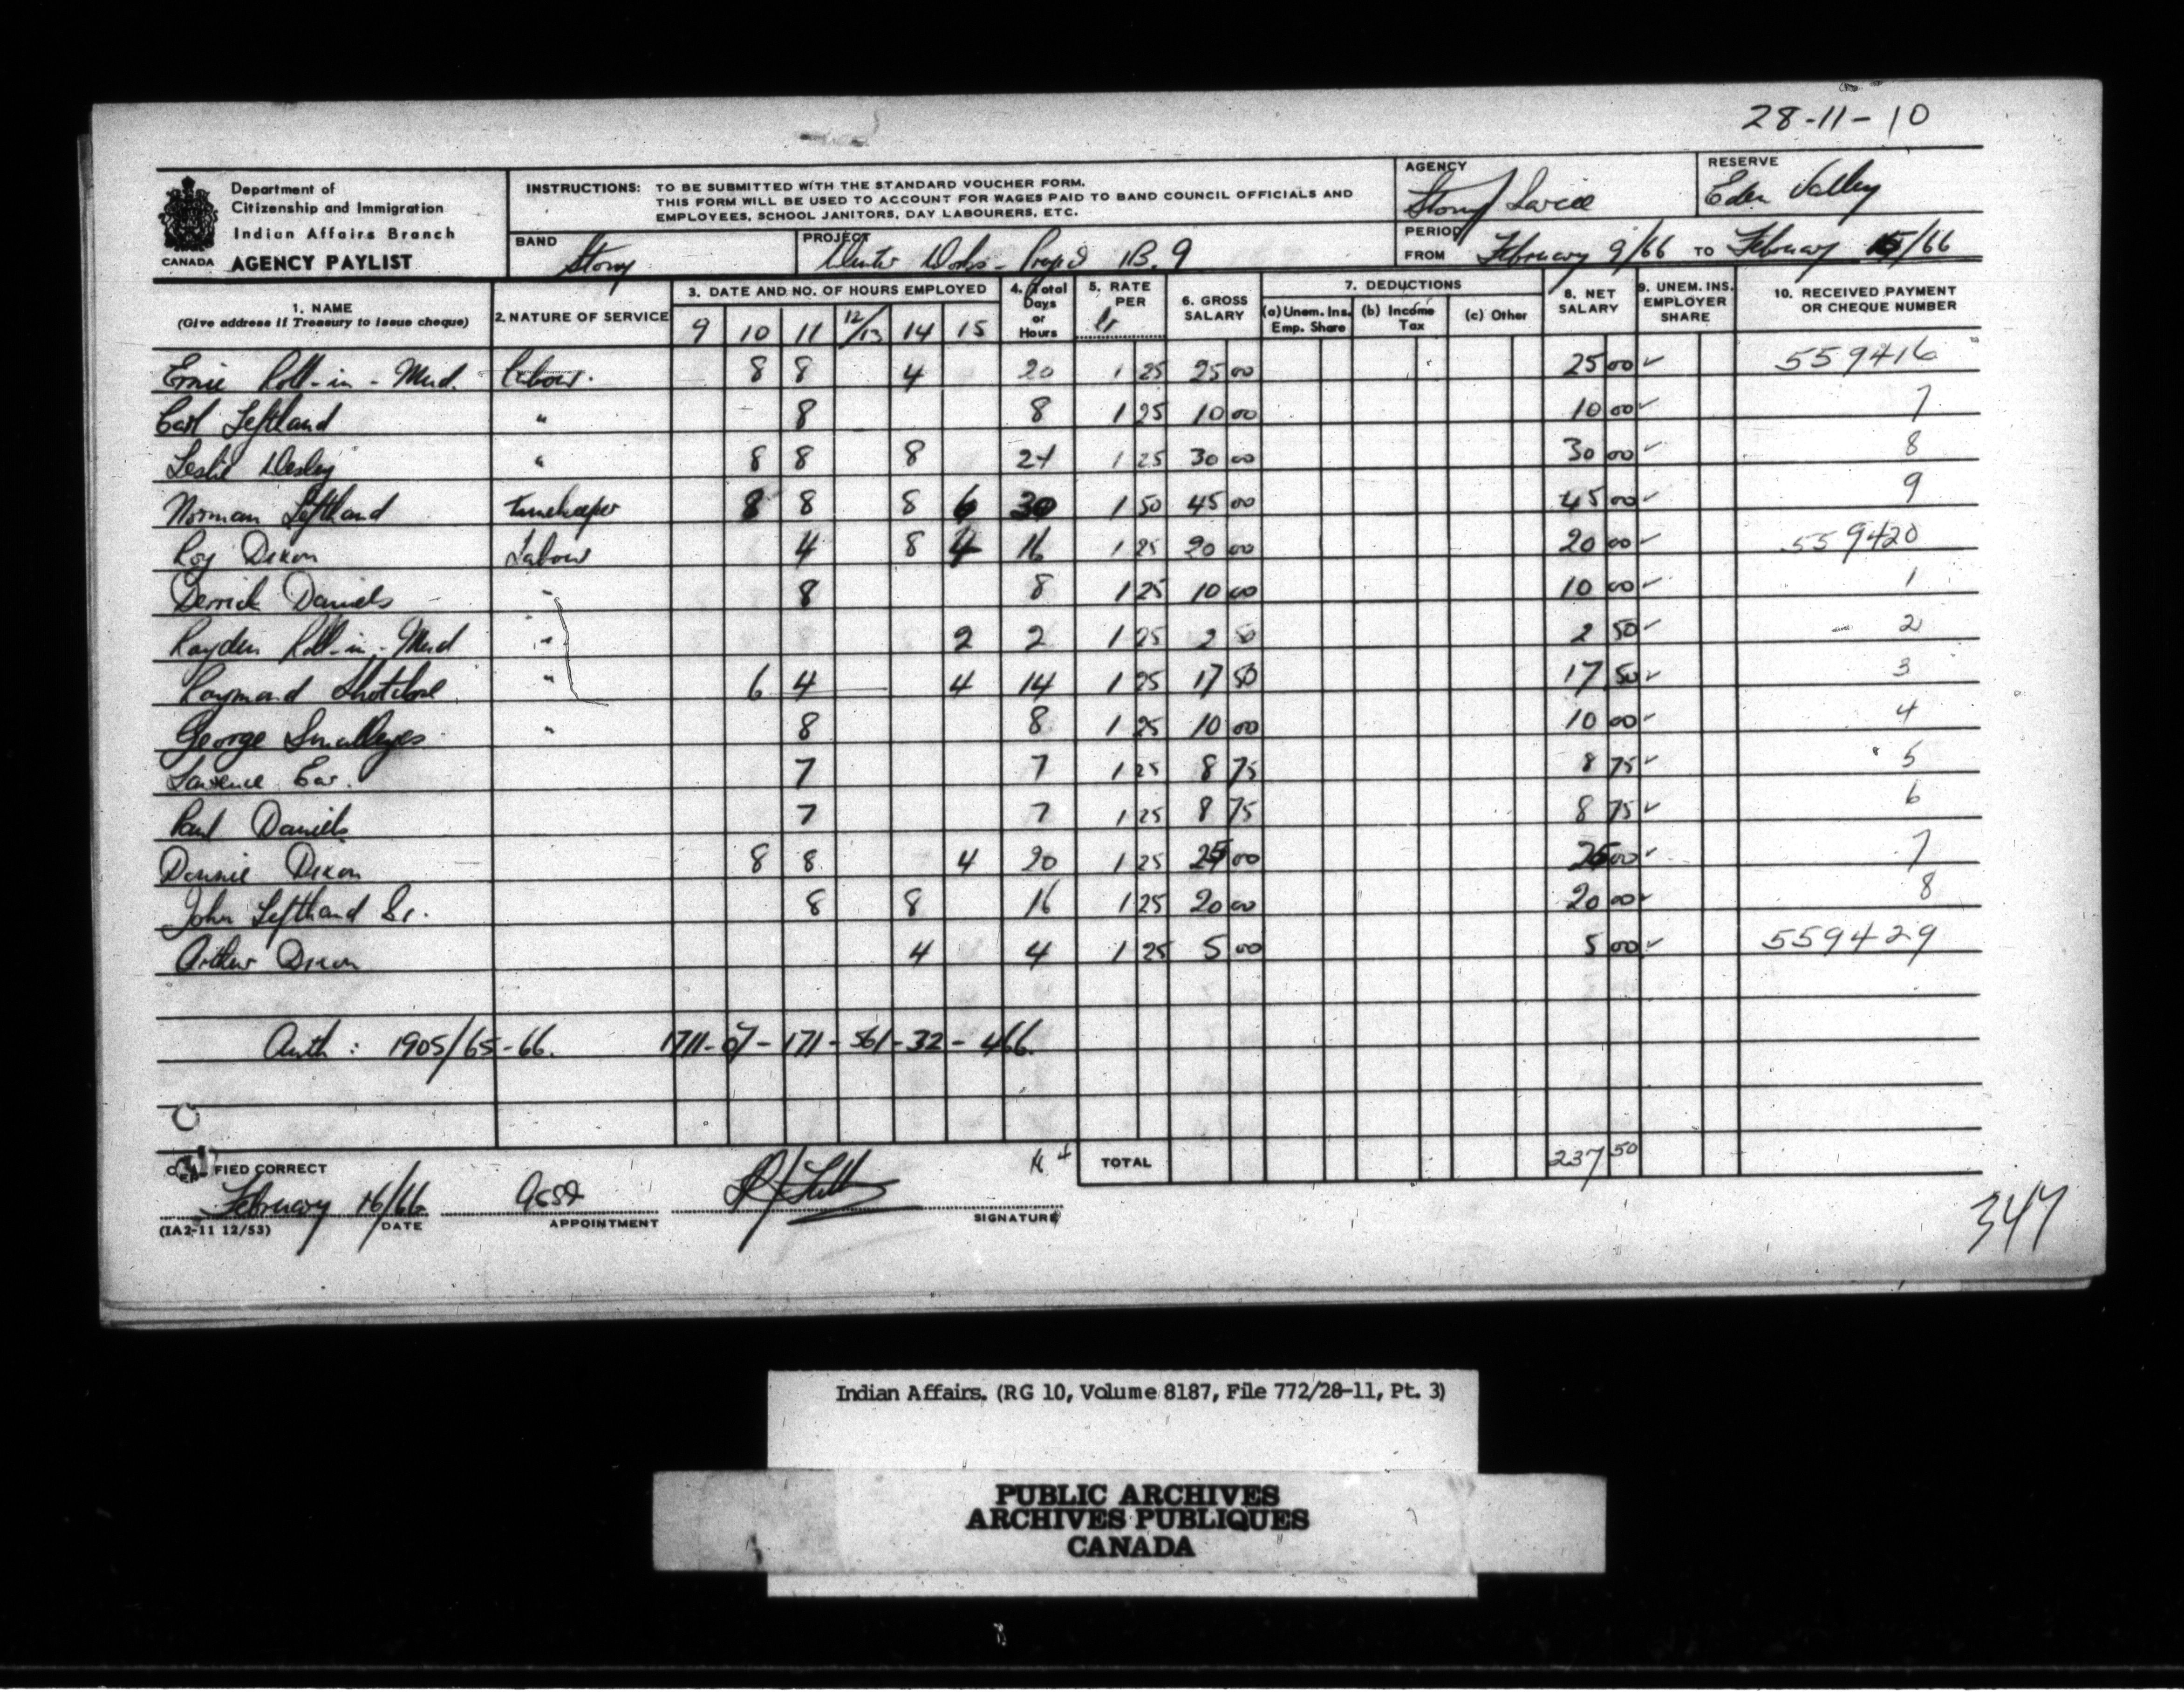 28-11-10
Department of
Citizenship and Immigration
Indian Affairs Branch
CANADA AGENCY PAYLIST
INSTRUCTIONS: TO BE SUBMITTED WITH THE STANDARD VOUCHER FORM.
THIS FORM WILL BE USED TO ACCOUNT FOR WAGES PAID TO BAND COUNCIL OFFICIALS AND
EMPLOYEES, SCHOOL JANITORS, DAY LABOURERS, ETC.
AGENCY Stony Sarcee
RESERVE Eden Valley
BAND Stony
PROJECT Winter Works - Project B. 9
PERIOD FROM February 9/66 TO February 15/66
1. NAME (Give address if Treasury to issue cheque)
2. NATURE OF SERVICE
3. DATE AND NO. OF HOURS EMPLOYED
9 10 11 12/13 14 15
4. Total Days or Hours
5. RATE PER hr
6. GROSS SALARY
7. DEDUCTIONS
(a) Unem. Ins. Emp. Share (b) Income Tax (c) Other
8. NET SALARY
9. UNEM. INS. EMPLOYER SHARE
10. RECEIVED PAYMENT OR CHEQUE NUMBER
Ernie Roll-in-Mud. Labour. 8 8 4 20 1 25 25 00 25 00 ✓ 559416
Carl Lefthand " 8 8 1 25 10 00 10 00 ✓ 7
Leslie Wesley " 8 8 8 24 1 25 30 00 30 00 ✓ 8
Norman Lefthand Timekeeper 8 8 8 6 30 1 50 45 00 45 00 ✓ 9
Roy Dixon Labour 4 8 4 16 1 25 20 00 20 00 ✓ 559420
Derrick Daniels " 8 8 1 25 10 00 10 00 ✓ 1
Rayden Roll-in-Mud " 2 2 1 25 2 50 2 50 ✓ 2
Raymond Shotclose " 6 4 4 14 1 25 17 50 17 50 ✓ 3
George Smalleyes " 8 8 1 25 10 00 10 00 ✓ 4
Lawrence Ear. 7 7 1 25 8 75 8 75 ✓ 5
Paul Daniels 7 7 1 25 8 75 8 75 ✓ 6
Donnie Dixon 8 8 4 20 1 25 25 00 25 00 ✓ 7
John Lefthand Sr. 8 8 16 1 25 20 00 20 00 ✓ 8
Arthur Dixon 4 4 1 25 5 00 5 00 ✓ 559429
Auth: 1905/65-66. 1711-07-171-561-32-466.
TOTAL 237 50
CERTIFIED CORRECT
February 16/66 Asst
DATE APPOINTMENT SIGNATURE
(IA2-11 12/53)
347
Indian Affairs. (RG 10, Volume 8187, File 772/28-11, Pt. 3)
PUBLIC ARCHIVES
ARCHIVES PUBLIQUES
CANADA